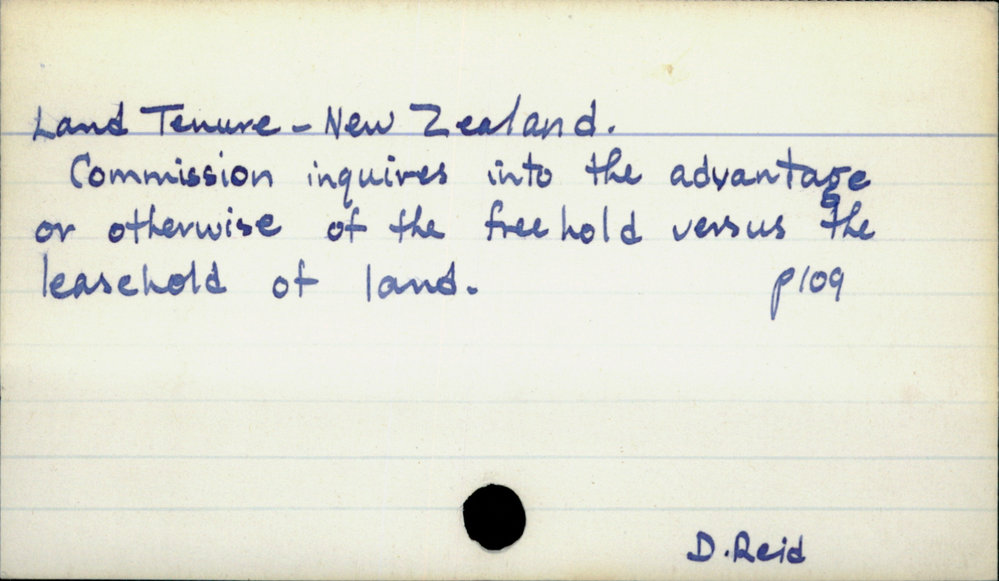 Land Tenure - New Zealand.
Commission inquires into the advantage
or otherwise of the freehold versus the
leasehold of land. p109
D. Reid